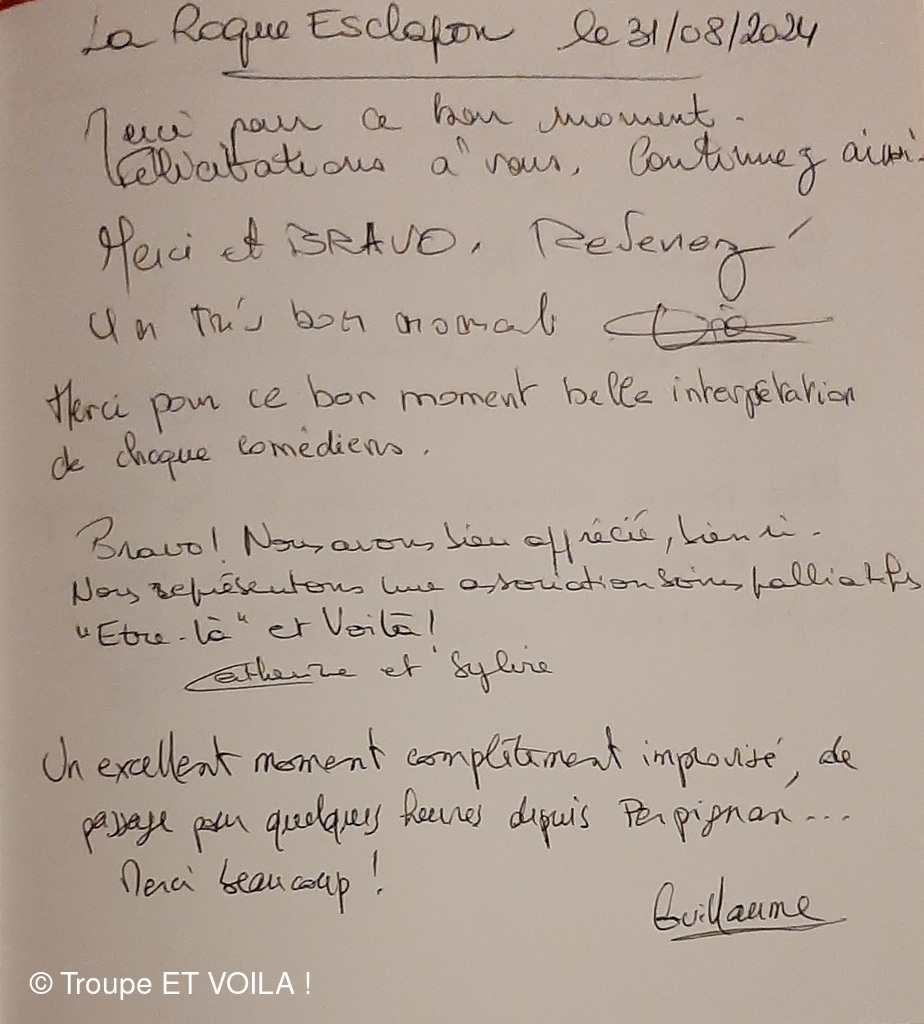 La Roque Esclapon le 31/08/2024
Merci pour ce bon moment.
Félicitations à vous. Continuez ainsi.
Merci et BRAVO. Revenez
Un très bon moment
Merci pour ce bon moment belle interprétation
de chaque comédiens.
Bravo! Nous avons bien apprécié, bien ri.
Nous représentons une association soins palliatifs
"Etre-là" et Voilà!
Catherine et Sylvie
Un excellent moment complètement improvisé, de
passage pour quelques heures depuis Perpignan...
Merci beaucoup!
Guillaume
© Troupe ET VOILA !